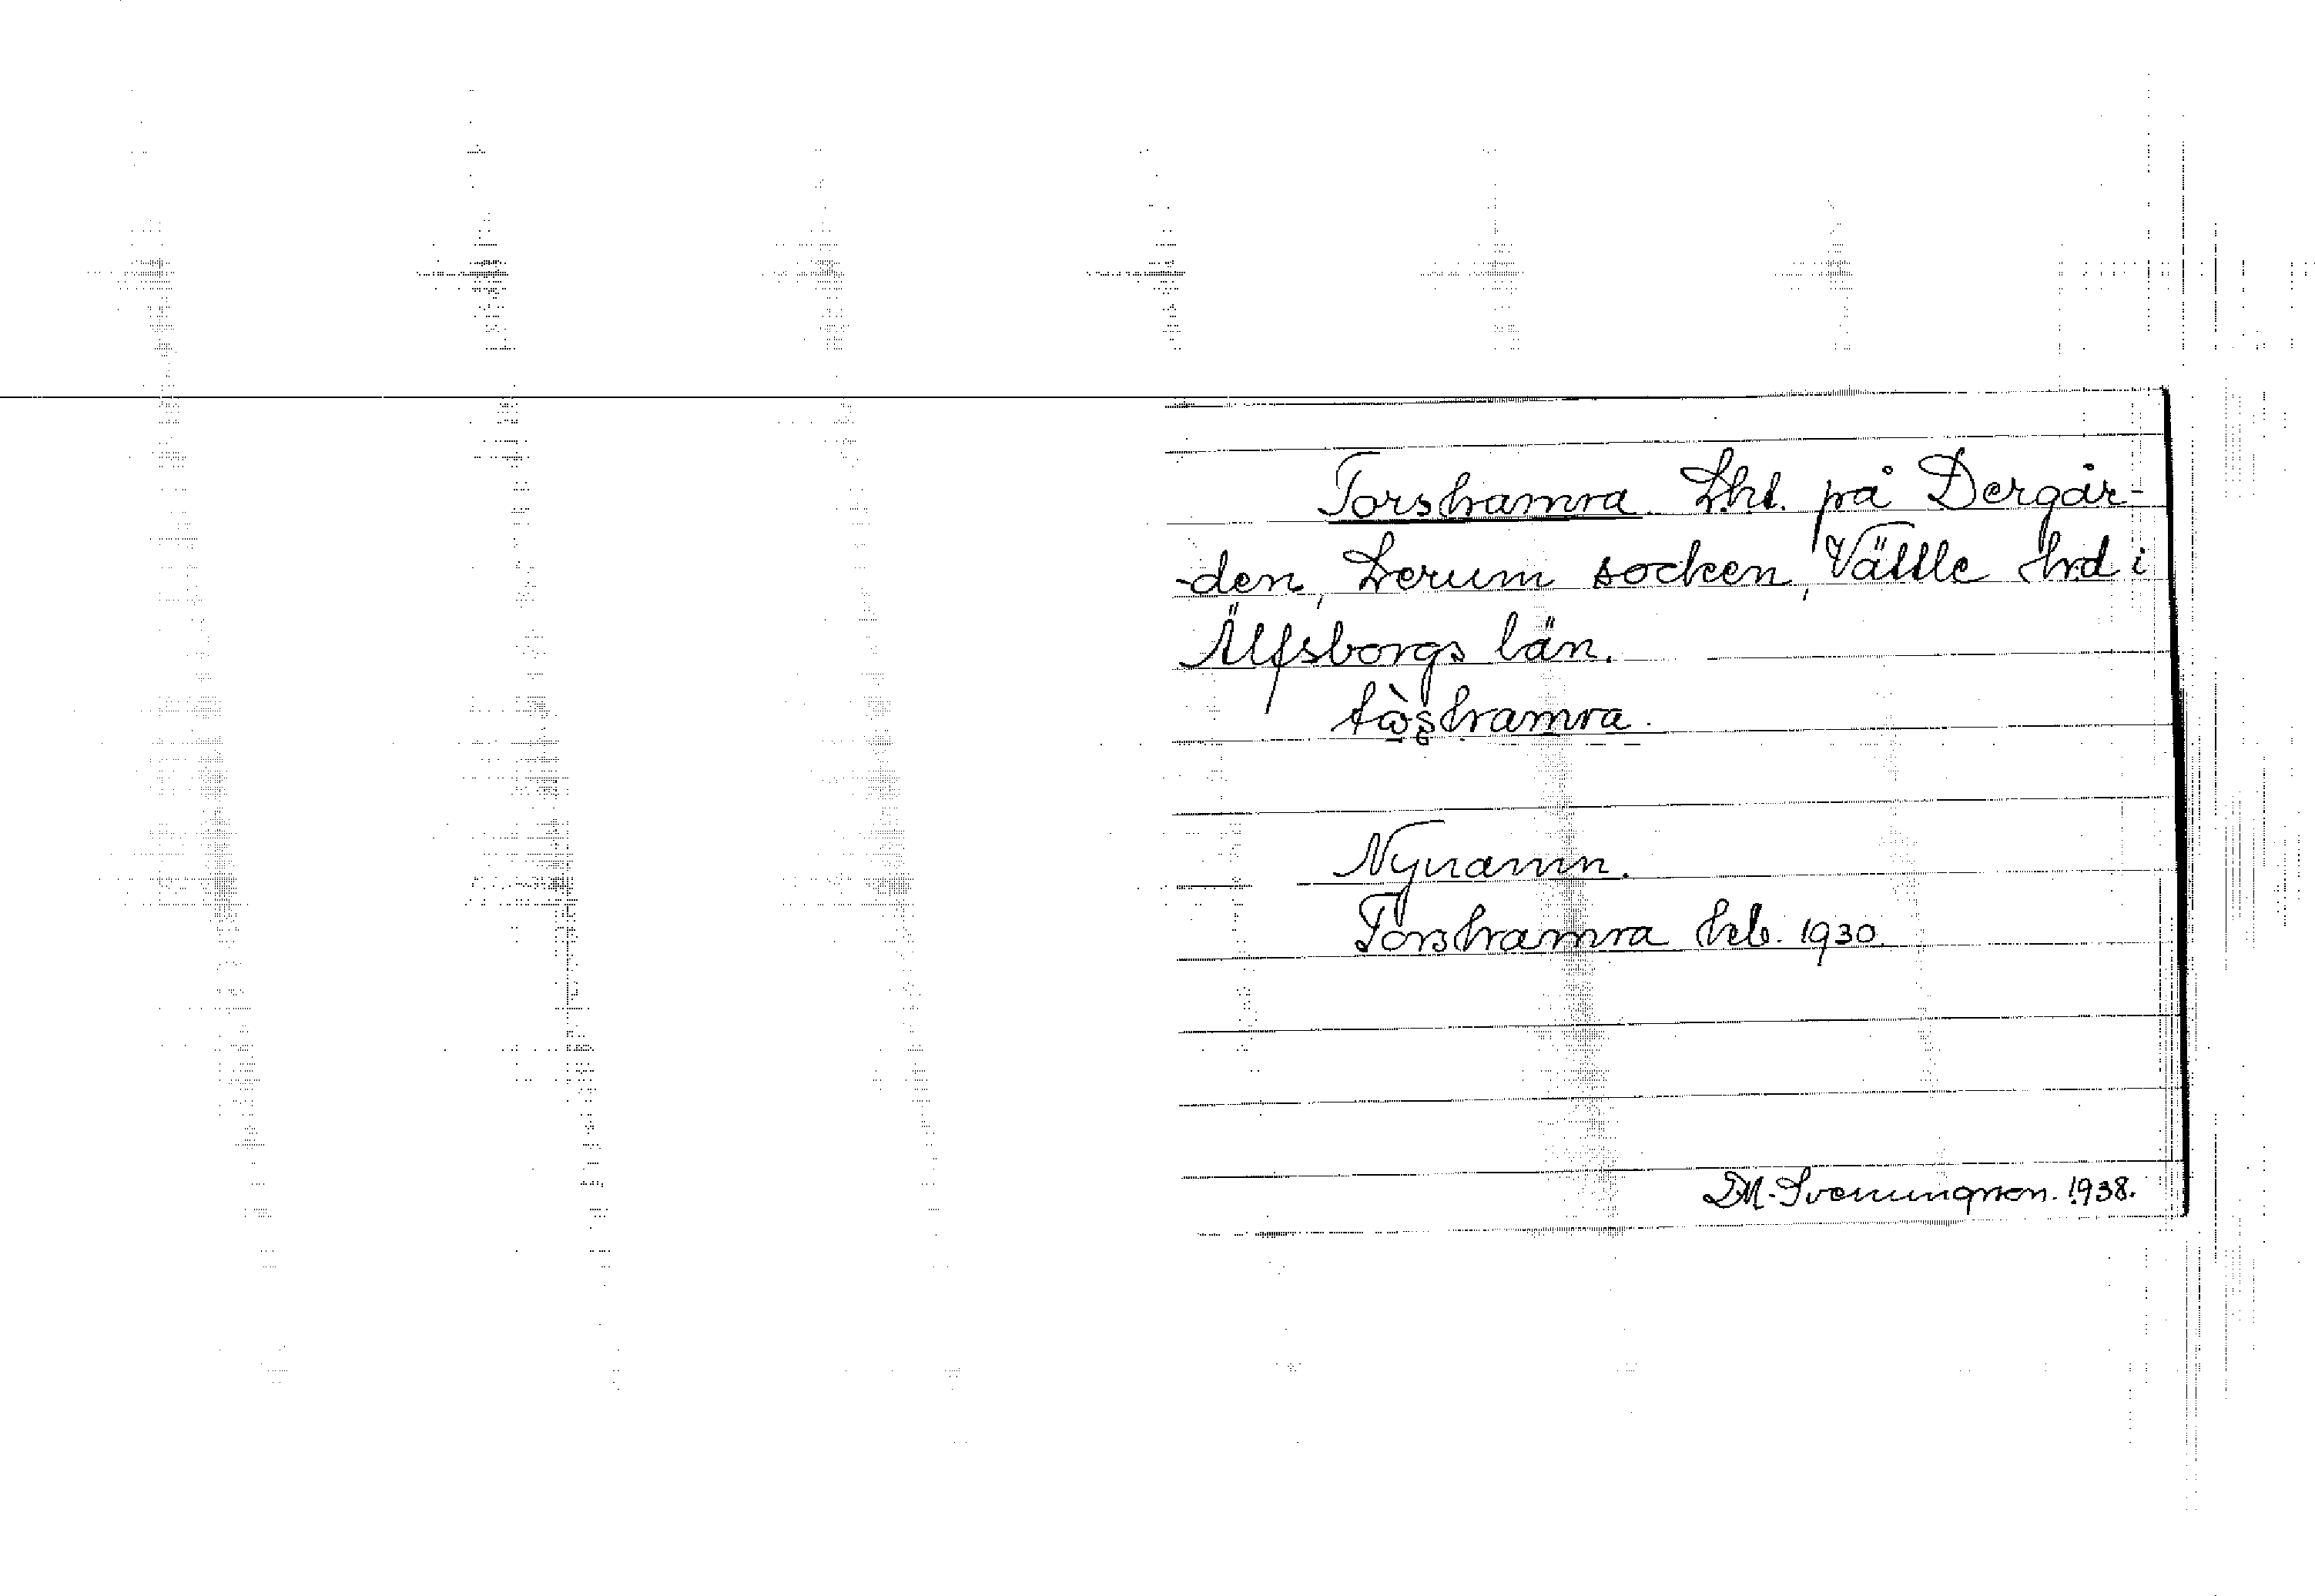 Torshamra Lht. på Dergår-
den, Lerum socken, Vättle hrd i
Älfsborgs län.
tò̱s̱hamra.
Nynamn.
Torshamra hrb. 1930.
D.M. Svenningson. 1938.